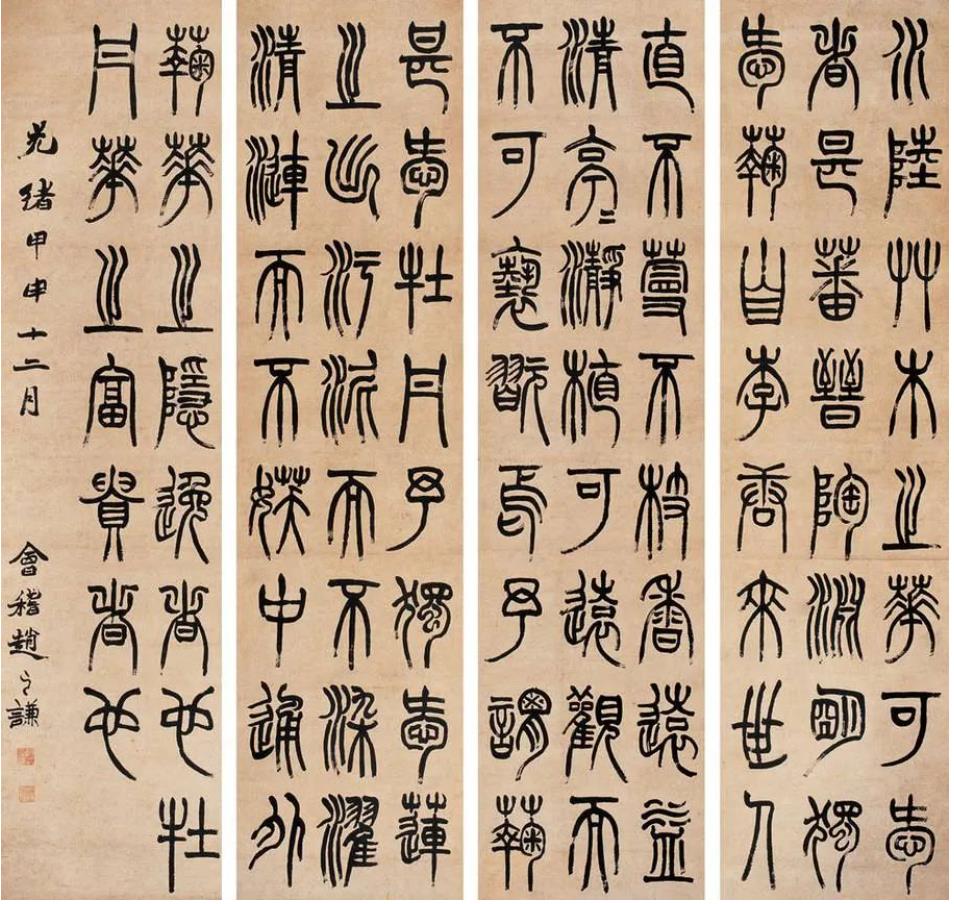 水陸艸木之華可愛
者甚蕃晉陶淵明獨
愛蘜自李唐來世人
直不蔓不枝香遠益
清亭二瀞植可遠觀而
不可褻翫焉予謂蘜
甚愛牡丹予獨愛蓮
之出汙泥而不染濯
清漣而不媄中通外
蘜華之隱逸者也牡
丹華之富貴者也
光緒甲申十二月 會稽趙之謙